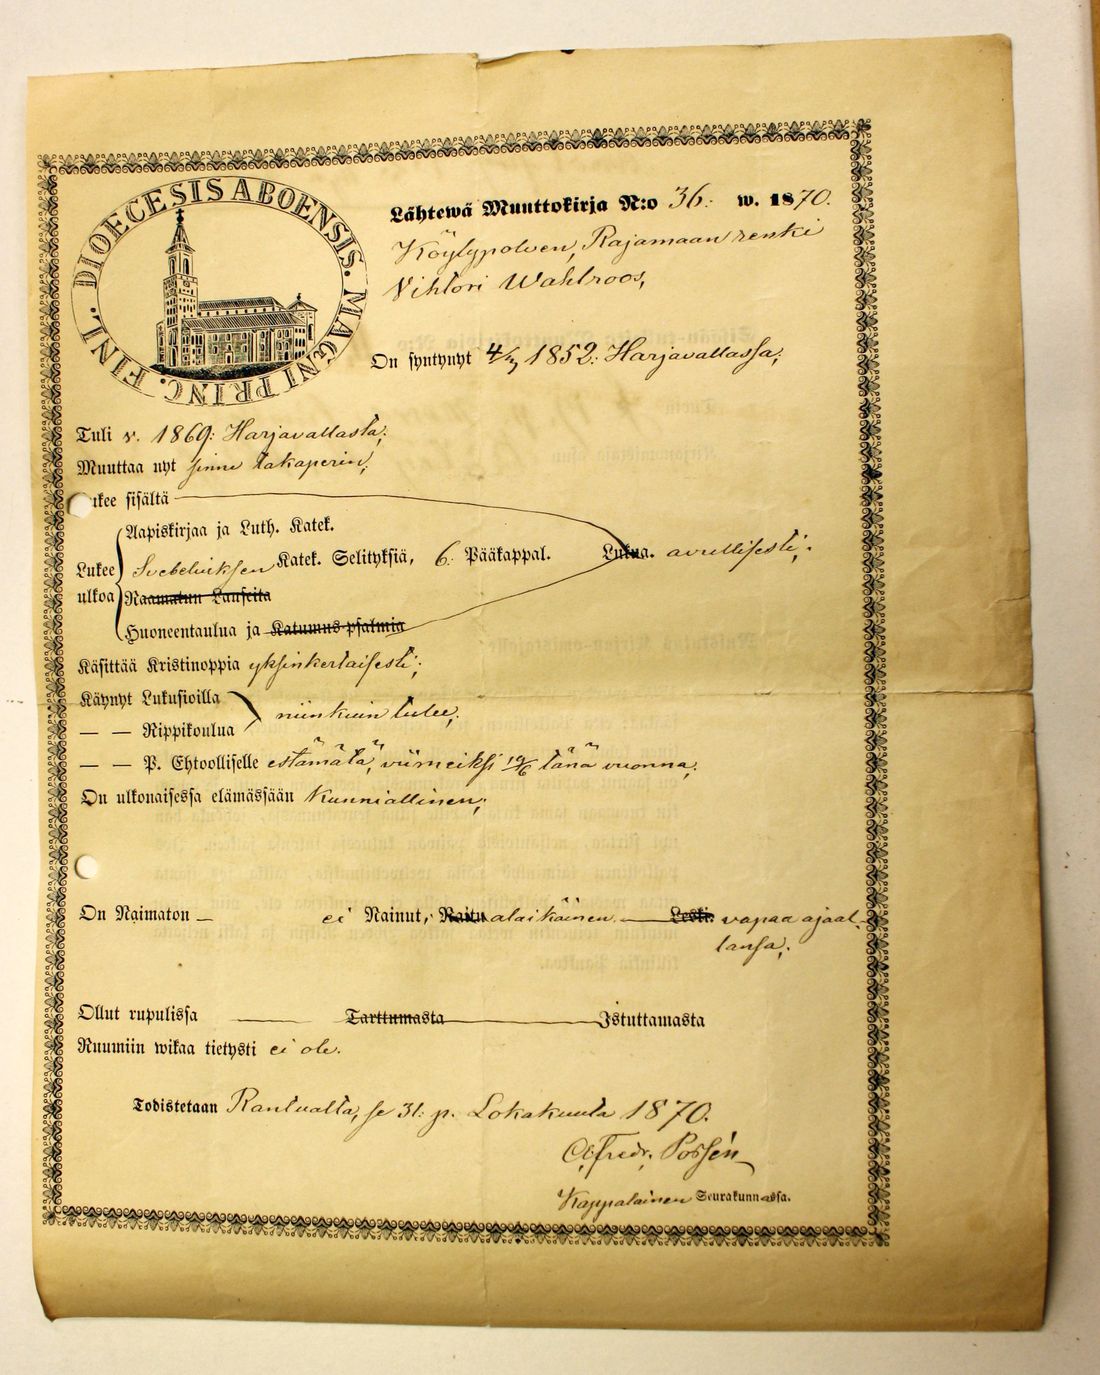 DIOECESIS ABOENSIS. MAGNI PRINC. FINL.
Lähtewä Muuttokirja N:o 36: w. 1870.
Köylypolven, Rajamaan renki
Vihtori Wahlroos,
On syntynyt 4/3 1852: Harjavallassa;
Tuli v. 1869: Harjavallasta;
Muuttaa nyt sinne takaperin;
Lukee sisältä
Aapiskirjaa ja Luth. Katek.
Lukee ulkoa
Svebeliuksen Katek. Selityksiä, 6: Pääkappal. Lukua. avullisesti;
Raamatun Lauseita
Huoneentaulua ja Katumus-psalmia
Käsittää Kristinoppia yksinkertaisesti;
Käynyt Lukusioilla
— — Rippikoulua
niinkuin tulee;
— — P. Ehtoolliselle estämätä, viimeiksi 19/6 tänä vuonna;
On ulkonaisessa elämässään Kunniallinen;
On Naimaton — ei Nainut, Naitu alaikäinen — Leski. vapaa ajaal-
lansa;
Ollut rupulissa — Tarttumasta — Istuttamasta
Ruumiin wikaa tietysti ei ole.
Todistetaan Rantualta, se 31: p. Lokakuuta 1870.
Alfredr. Possén
Kappalainen Seurakunnassa.